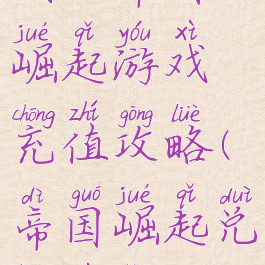 jué qǐ yóu xì
崛起游戏
chōng zhí gōng lüè
充值攻略(
dì guó jué qǐ duì
帝国崛起兑